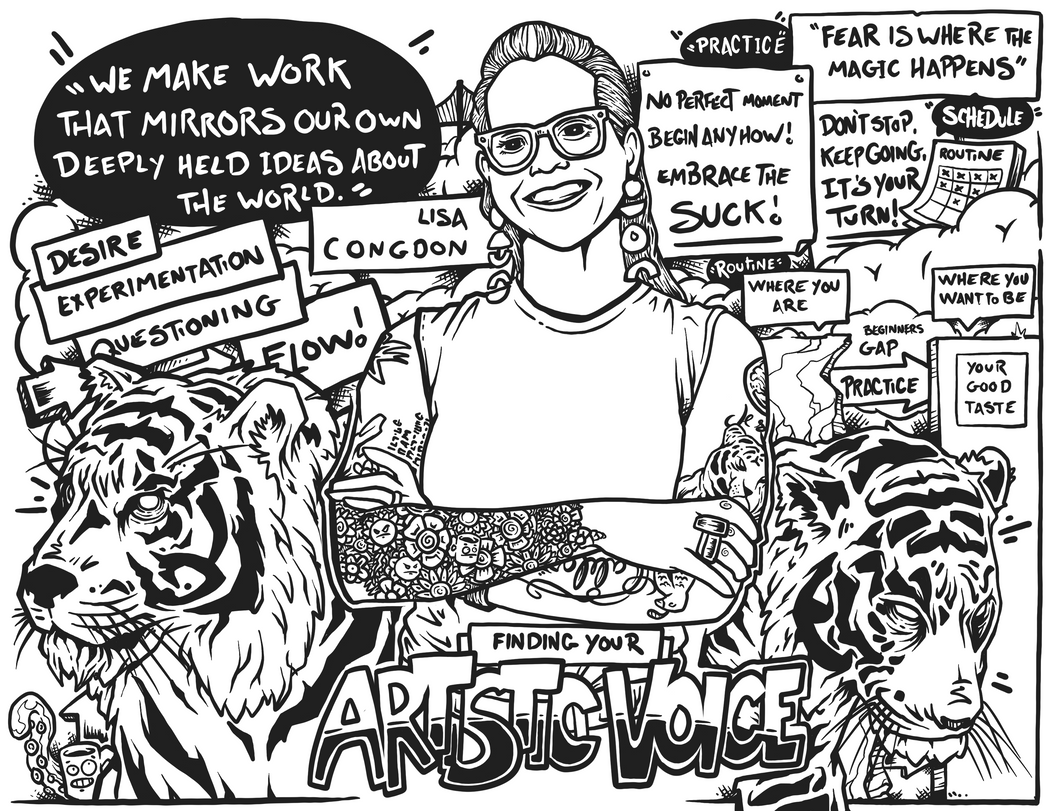 "WE MAKE WORK
THAT MIRRORS OUR OWN
DEEPLY HELD IDEAS ABOUT
THE WORLD."
LISA
CONGDON
DESIRE
EXPERIMENTATION
QUESTIONING
FLOW!
"PRACTICE"
NO PERFECT MOMENT
BEGIN ANYHOW!
EMBRACE THE
SUCK!
"FEAR IS WHERE THE
MAGIC HAPPENS"
DON'T STOP,
KEEP GOING,
IT'S YOUR
TURN!
"SCHEDULE"
ROUTINE
"ROUTINE"
WHERE YOU
ARE
WHERE YOU
WANT TO BE
BEGINNERS
GAP
PRACTICE
YOUR
GOOD
TASTE
FINDING YOUR
ARTISTIC VOICE